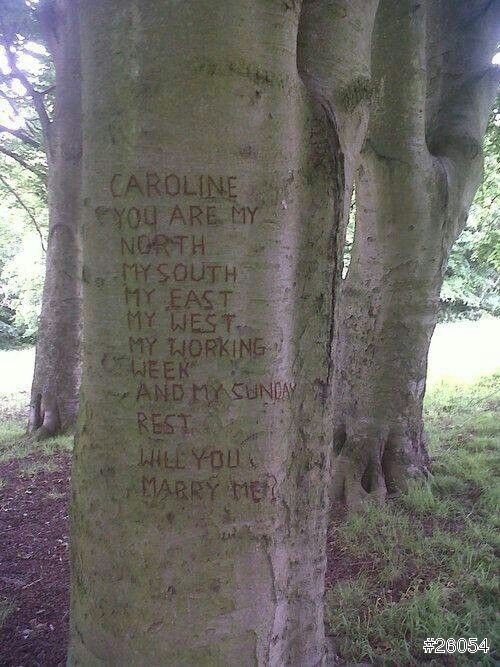 CAROLINE
YOU ARE MY
NORTH
MY SOUTH
MY EAST
MY WEST
MY WORKING
WEEK
AND MY SUNDAY
REST
WILL YOU
MARRY ME?
#26054